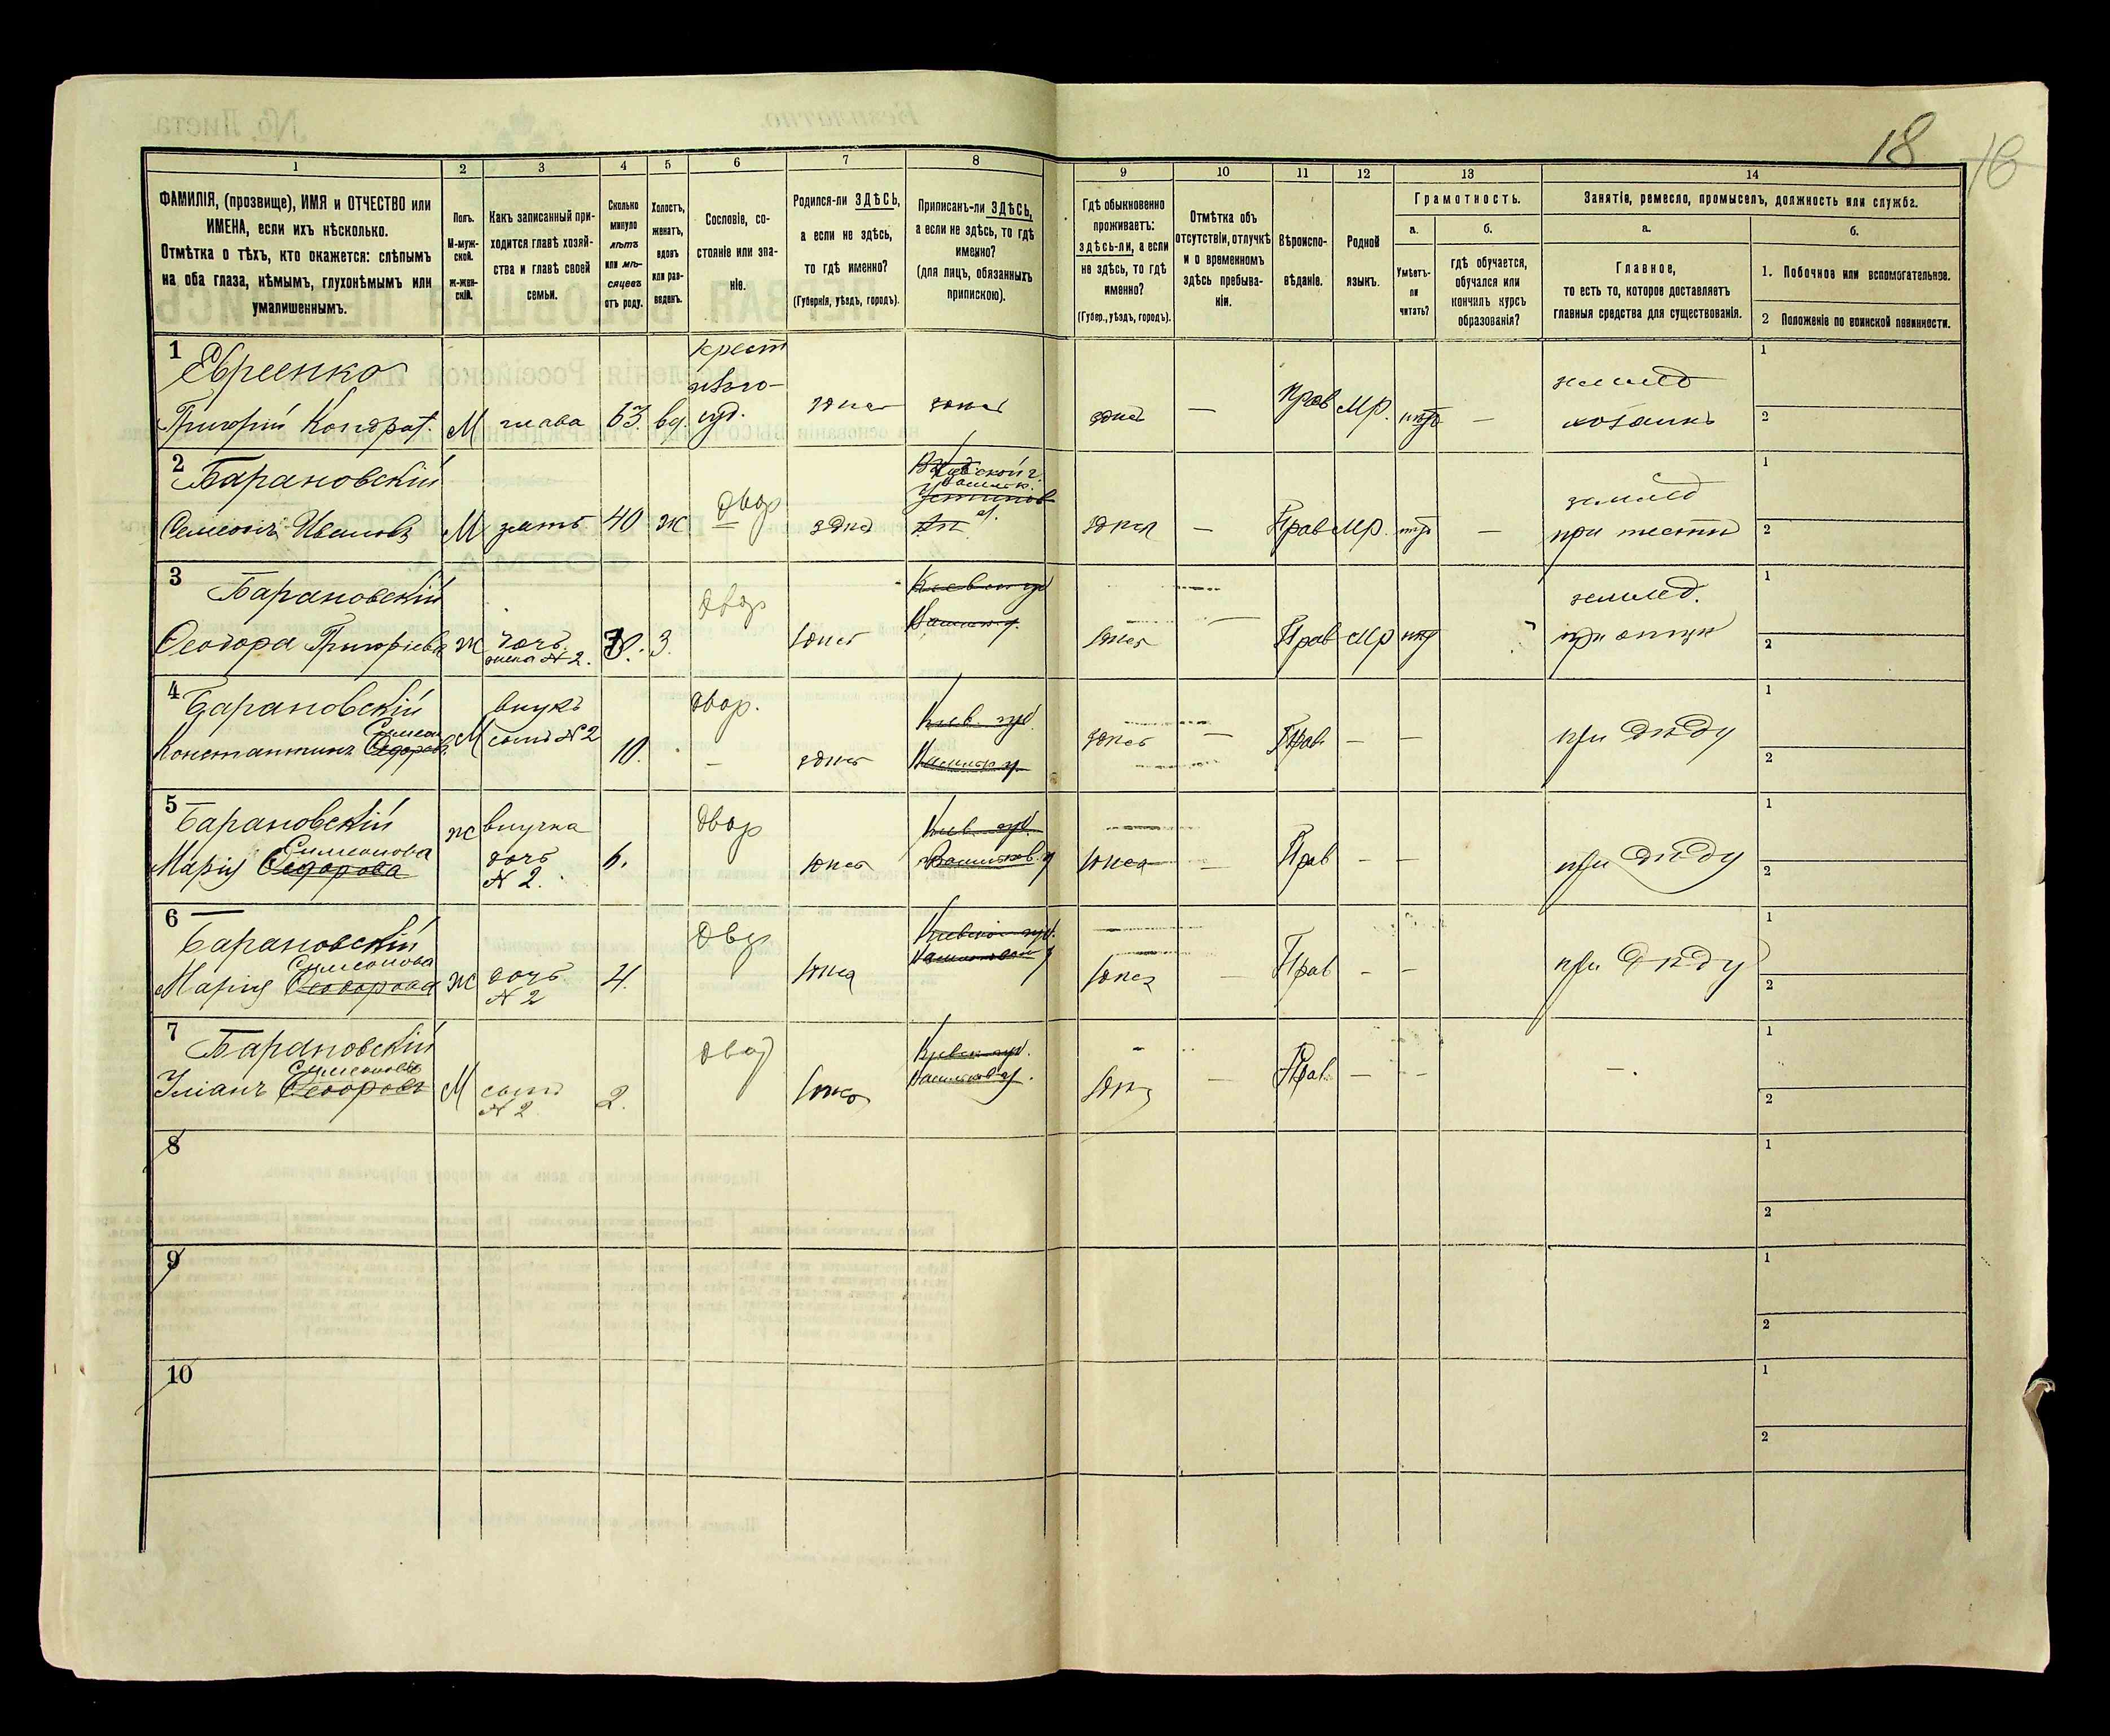 18
16
1
2
3
4
5
6
7
8
9
10
11
12
13
14
ФАМИЛІЯ, (прозвище), ИМЯ и ОТЧЕСТВО или
ИМЕНА, если ихъ нѣсколько.
Отмѣтка о тѣхъ, кто окажется: слѣпымъ
на оба глаза, нѣмымъ, глухонѣмымъ или
умалишеннымъ.
Полъ.
М-муж-
ской.
ж-жен-
скій.
Какъ записанный при-
ходится главѣ хозяй-
ства и главѣ своей
семьи.
Сколько
минуло
лѣтъ
или мѣ-
сяцевъ
отъ роду.
Холостъ,
женатъ,
вдовъ
или раз-
веденъ.
Сословіе, со-
стояніе или зва-
ніе.
Родился-ли ЗДѢСЬ,
а если не здѣсь,
то гдѣ именно?
(Губернія, уѣздъ, городъ).
Приписанъ-ли ЗДѢСЬ,
а если не здѣсь, то гдѣ
именно?
(для лицъ, обязанныхъ
припискою).
Гдѣ обыкновенно
проживаетъ:
здѣсь-ли, а если
не здѣсь, то гдѣ
именно?
(Губер., уѣздъ, городъ).
Отмѣтка объ
отсутствіи, отлучкѣ
и о временномъ
здѣсь пребыва-
ніи.
Вѣроиспо-
вѣданіе.
Родной
языкъ.
Грамотность.
а.
Умѣетъ-
ли
читать?
б.
гдѣ обучается,
обучался или
кончилъ курсъ
образованія?
Занятіе, ремесло, промыселъ, должность или служба.
а.
Главное,
то есть то, которое доставляетъ
главныя средства для существованія.
б.
1. Побочное или вспомогательное.
2 Положеніе по воинской повинности.
1
Евреенко
Григорій Кондрат.
М
глава
63.
вд.
крест
здѣсь
здѣсь
здѣсь
—
Прав
Мр.
—
землед
хозяинъ
1
2
2
Барановскій
Семеонъ Ивановъ
М
зять
40
ж
двор
здѣсь
здѣсь
—
Прав
Мр.
—
землед
при тестѣ
1
2
3
Барановскій
Ѳеодора Григоріева
ж
дочь
жена №2.
З.
двор
здѣсь
Васильк. у.
здѣсь
Прав
Мр
землед.
при отцѣ
1
2
4
Барановскій
Симеон
Константинъ Ѳедоров.
М
внукъ
сынъ №2
10.
двор.
—
здѣсь
Киев губ
Васильк у.
здѣсь
—
Прав.
—
—
при дѣду
1
2
5
Барановскій
Симеонова
Марія Ѳедорова
ж
внучка
дочь
№ 2.
6.
двор
здѣсь
Киев. губ.
Васильков. у
здѣсь
—
Прав
—
—
при дѣду
1
2
6
Барановскій
Симеонова
Марія Ѳеодорова
ж
дочь
№ 2
4.
двор
здѣсь
Киевской губ.
здѣсь
—
Прав
—
—
при дѣду
1
2
7
Барановскій
Симеоновъ
Уліанъ Ѳеодоровъ
М
сынъ
№ 2
2.
двор
здѣсь
Киевск губ.
Васильков у.
здѣсь
—
Прав.
—
—
—.
1
2
8
1
2
9
1
2
10
1
2